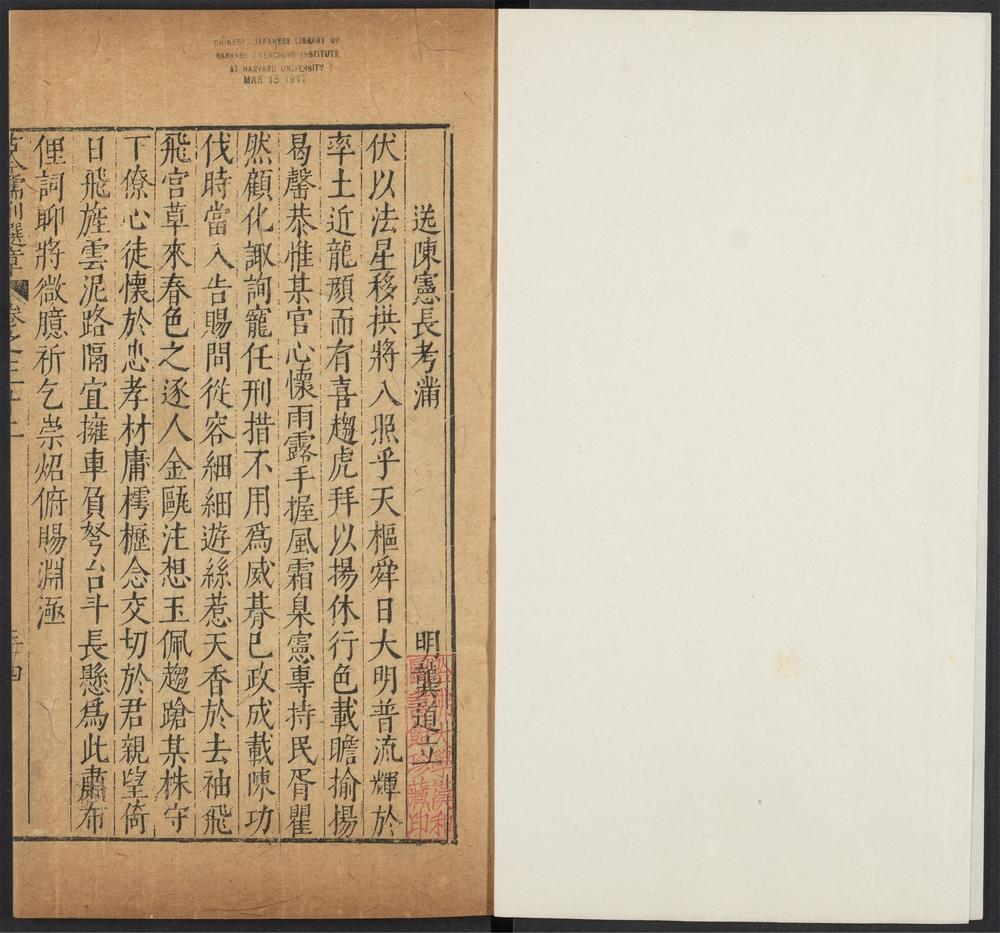 CHINESE - JAPANESE LIBRARY OF
HARVARD - YENCHING INSTITUTE
AT HARVARD UNIVERSITY
MAR 15 1941
送陳憲長考滿
明龔道立
伏以法星移拱將入照乎天樞舜日大明普流輝於
率土近龍顏而有喜趨虎拜以揚休行色載瞻揄揚
曷罄恭惟某官心懷雨露手握風霜臬憲專持民胥瞿
然顧化諏詢寵任刑措不用爲威朞已政成載陳功
伐時當入告賜問從容細細遊絲惹天香於去袖飛
飛宮草來春色之逐人金甌注想玉佩趨蹌某株守
下僚心徒懷於忠孝材庸樗櫪念交切於君親望倚
日飛旌雲泥路隔宜擁車負弩台斗長懸爲此肅布
俚詞聊將微臆祈乞崇炤俯賜淵涵
選章 卷之三十二
哈佛大學漢和圖書館珍藏印